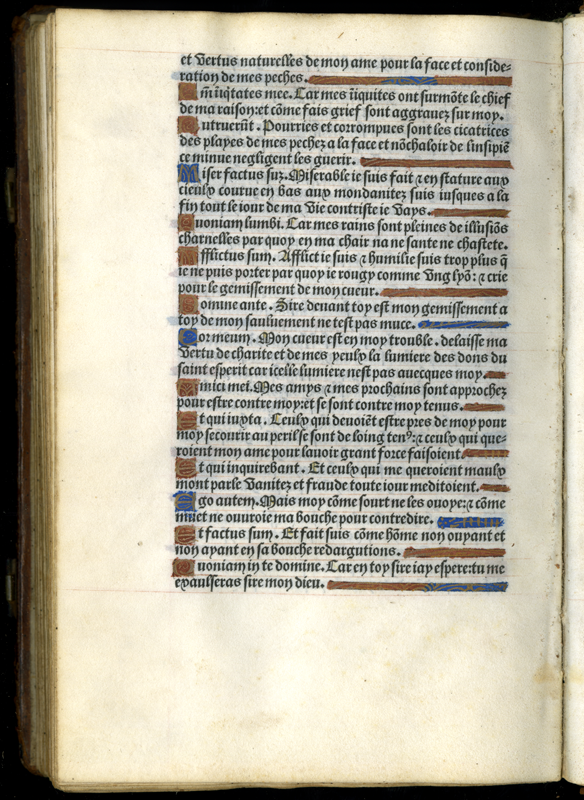 et vertus naturelles de mon ame pour la face et conside-
ration de mes peches.
Qm̄ iīqtates mee. Car mes iiquites ont surmōte le chief
de ma raison: et cōme fais grief sont aggrauez sur moy.
Putruerūt. Pourries et corrompues sont les cicatrices
des playes de mes pechez a la face et nōchaloir de linsipiē
ce minue negligent les guerir.
Miser factus suz. Miserable ie suis fait ⁊ en stature aux
cieulx courue en bas aux mondanitez suis iusques a la
fin tout le iour de ma vie contriste ie vays.
Quoniam lumbi. Car mes rains sont pleines de illusiōs
charnelles par quoy en ma chair na ne sante ne chastete.
Afflictus sum. Afflict ie suis ⁊ humilie suis trop plus q̄
ie ne puis porter par quoy ie rougy comme vng lyō: ⁊ crie
pour le gemissement de mon cueur.
Domine ante. Sire deuant toy est mon gemissement a
toy de mon sauluement ne test pas muce.
Cor meum. Mon cueur est en moy trouble. delaisse ma
vertu de charite et de mes yeulx la lumiere des dons du
saint esperit car icelle lumiere nest pas auecques moy.
Amici mei. Mes amys ⁊ mes prochains sont approchez
pour estre contre moy: et se sont contre moy tenus.
Et qui iuxta. Ceulx qui deuoiēt estre pres de moy pour
moy secourir au peril se sont de loing tenꝰ: ⁊ ceulx qui que-
roient mon ame pour lauoir grant force faisoient
Et qui inquirebant. Et ceulx qui me queroient maulx
mont parle vanitez et fraude toute iour meditoient.
Ego autem. Mais moy cōme sourt ne les ouoye: ⁊ cōme
muet ne ouuroie ma bouche pour contredire.
Et factus sum. Et fait suis cōme hōme non ouyant et
non ayant en sa bouche redargutions.
Quoniam in te domine. Car en toy sire iay espere: tu me
exaulseras sire mon dieu.